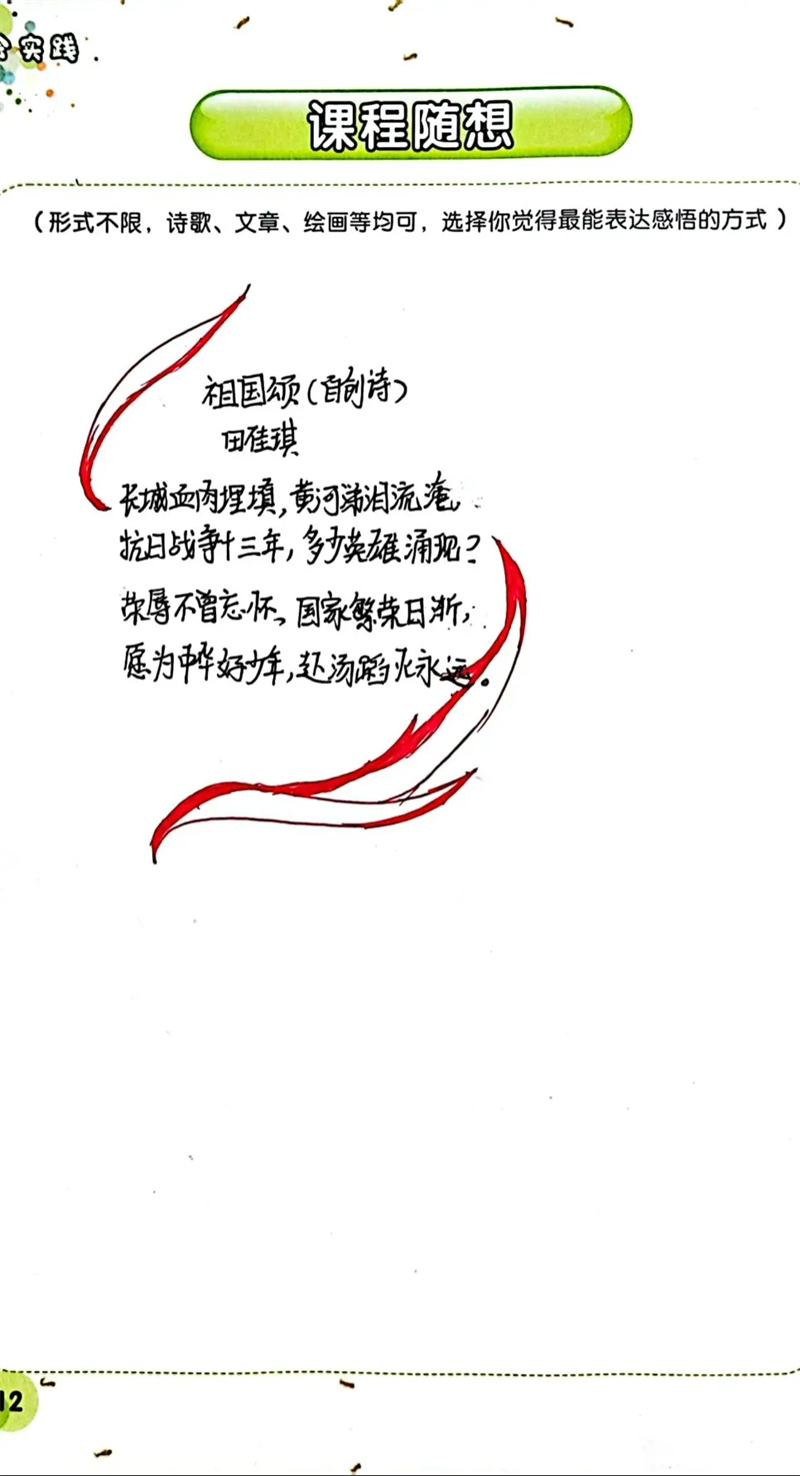 实践
课程随想
（形式不限，诗歌、文章、绘画等均可，选择你觉得最能表达感悟的方式）
祖国颂（自创诗）
田佳琪
长城血肉埋填，黄河涕泪流淹。
抗日战争十三年，多少英雄涌现？
荣辱不曾忘怀、国家繁荣日渐，
愿为中华好少年，赴汤蹈火永远。
12